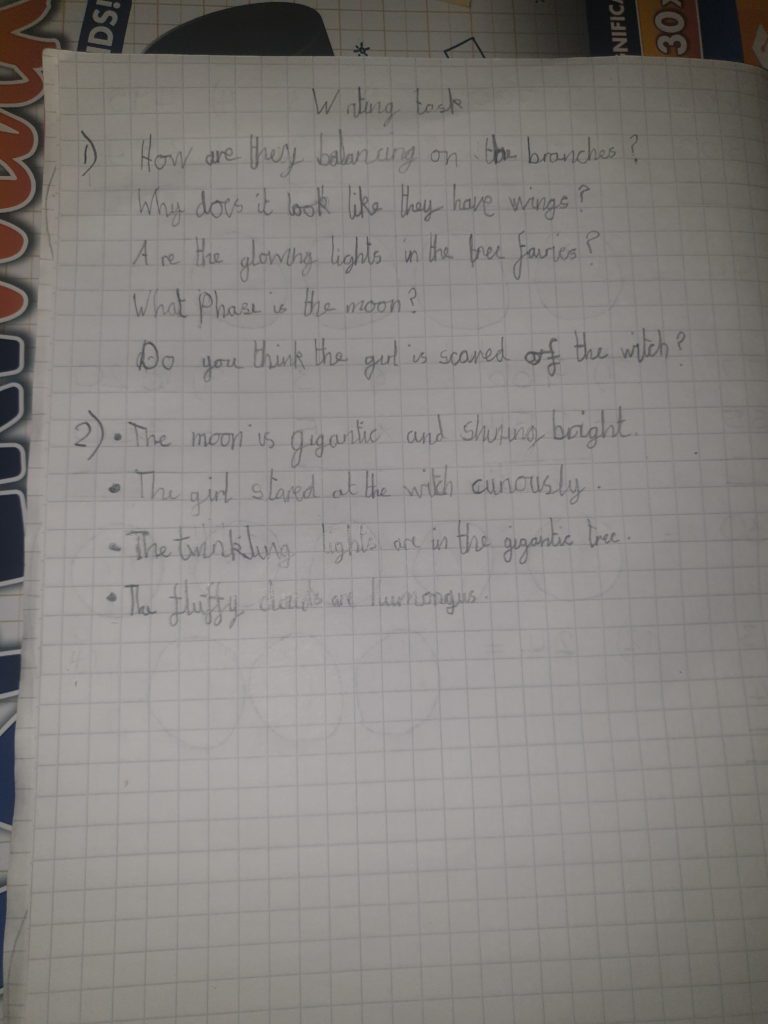 IDS!
NIFICA
30x
Writing task
1) How are they balancing on the branches?
Why does it look like they have wings?
Are the glowing lights in the tree fairies?
What Phase is the moon?
Do you think the girl is scared of the witch?
2) • The moon is gigantic and shining bright.
• The girl stared at the witch curiously.
• The twinkling lights are in the gigantic tree.
• The fluffy clouds are humongus.